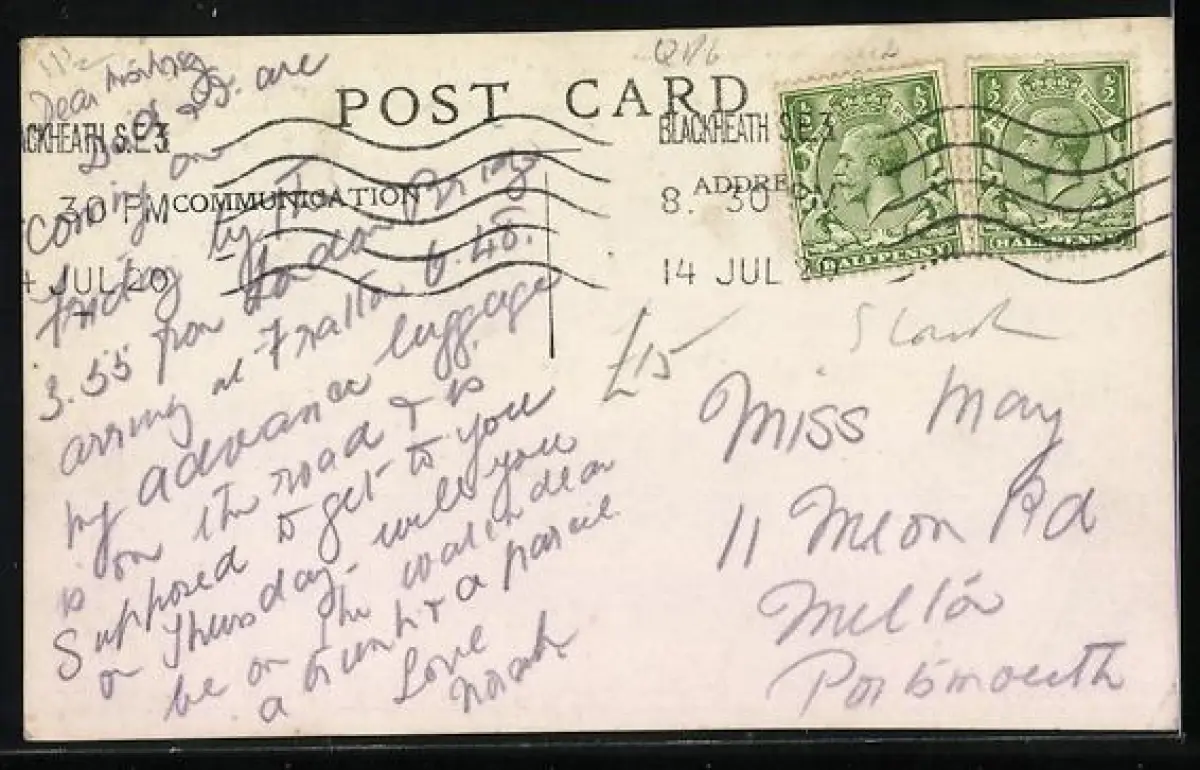 POST CARD
COMMUNICATION
ADDRE
BLACKHEATH S.E.3
8. 30 PM
14 JUL
ACKHEATH S.E.3
30 PM
4 JUL 20
HALFPENNY
HALFPENNY
£15
Dear
D. are
coming on
Friday by The
3.55 from London Bridge
arriving at Fratton 6.45.
my advance luggage
is on the road & is
Supposed to get to you
on Thursday. will you
be on the watch dear
a trunk & a parcel
Love
Norah
Miss May
11 Meon Rd
Milton
Portsmouth